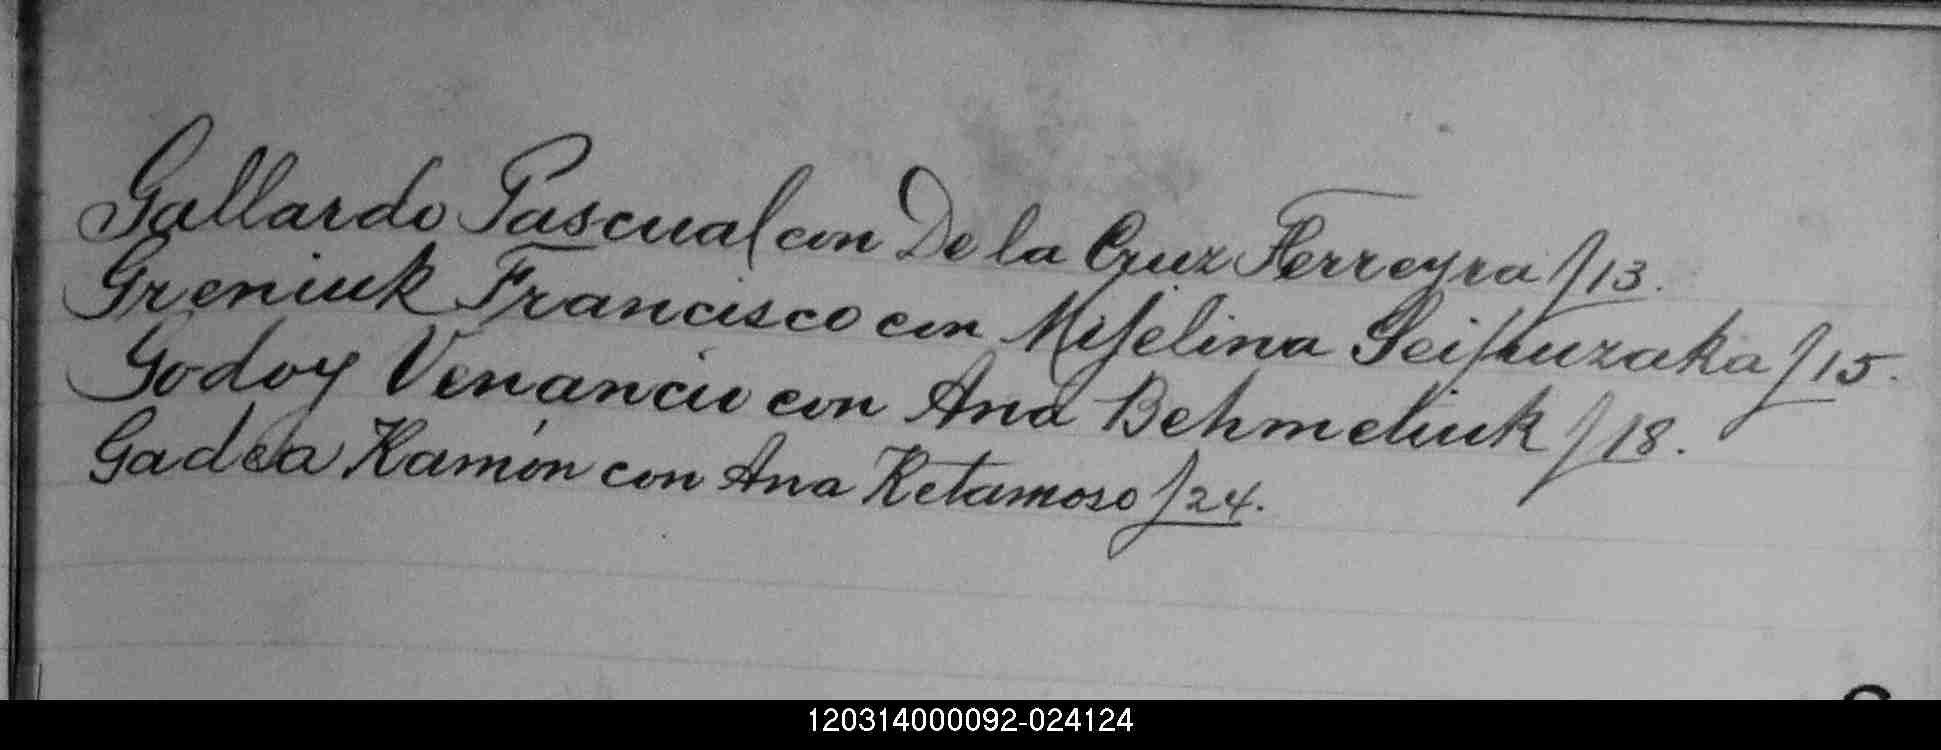 Gallardo Pascual con De la Cruz Ferreyra f 13.
Greniuk Francisco con f 15.
Godoy Venancio con Ana Behmeliuk f 18.
Gadea Ramón con Ana Retamoso f 24.
120314000092-024124